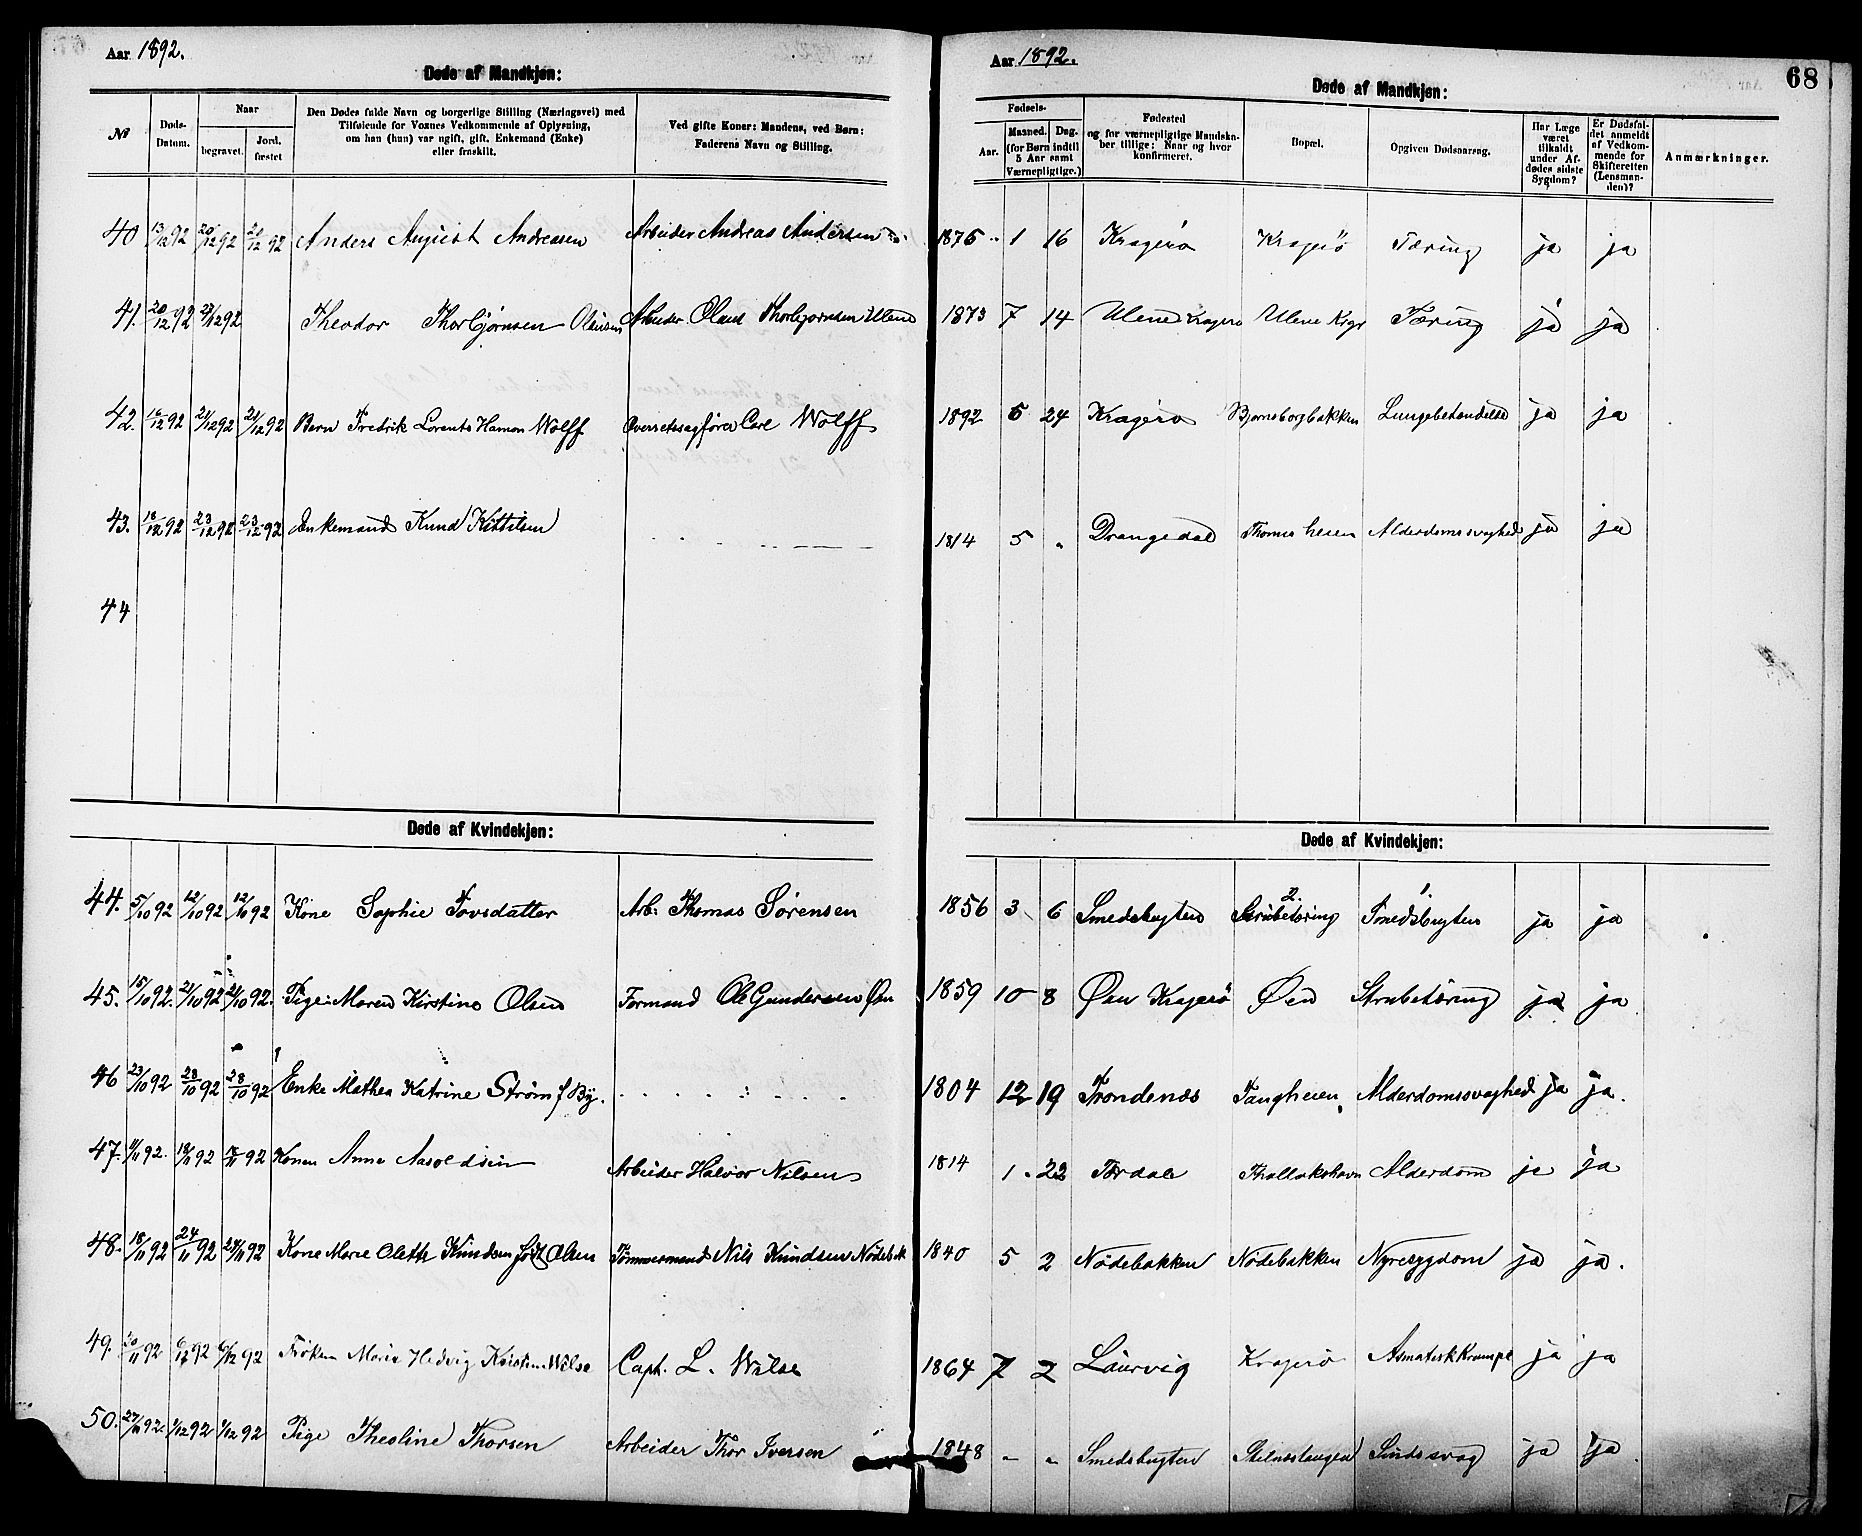 Aar 1892.
Døde af Mandkjøn:
№
Døds-Datum.
Naar
begravet.
Jord. fæstet
Den Dødes fulde Navn og borgerlige Stilling (Næringsvei) med
Tilføiende for Voxnes Vedkommende af Oplysning,
om han (hun) var ugift, gift, Enkemand (Enke)
eller fraskilt.
Ved gifte Koner: Mandens, ved Børn:
Faderens Navn og Stilling.
Aar 1892.
68
Døde af Mandkjøn:
Fødsels-
Aar.
Maaned. Dag.
(for Børn indtil
5 Aar samt
Værnepligtige.)
Fødested
og for værnepligtige Mandskaber tillige: Naar og hvor
konfirmeret.
Bopæl.
Opgiven Dødsaarsag.
Har Læge
været
tilkaldt
under Afdødes sidste
Sygdom?
Er Dødsfaldet anmeldt
af Vedkommende for
Skifteretten
(Lensmanden)?
Anmærkninger.
40 13/12 92 20/12 92 20/12 92 Anders August Andreasen Arbeider Andreas Andersen 1875 1 16 Kragerø Kragerö Tæring ja ja
41. 20/12 92 27/12 92 Theodor Thorbjørnsen Olausen Arbeider Olaus Thorbjørnsen Ulene 1873 7 14 Ulene Kragerø Ulene Krgr Tæring ja ja
42. 16/12 92 21/12 92 21/12 92 Barn Fredrik Lorents Hamon Wolff Overretssagfører Carl Wolff 1892 5 24 Kragerø Bjørnsborgbakken Lungebetændelse ja ja
43. 18/12 92 23/12 92 23/12 92 Enkemand Knud Kittilsen 1814 5 " Drangedal Thomesheien Alderdomssvaghed ja ja
44
Døde af Kvindekjøn:
Døde af Kvindekjøn:
44. 5/10 92 12/10 92 12/10 92 Kone Sophie Tovsdatter Arb: Thomas Sørensen 1856 3 6 Smedsbugten 2. Strubetæring 1. Smedsbugten ja ja
45. 15/10 92. 21/10 92 21/10 92. Pige: Maren Kirstine Olsen Formand Ole Gundersen Øen 1859 10 8 Øen Kragerö Øen Strubetæring ja ja
46 23/10 92 28/10 92 28/10 92 Enke Mathea Katrine Strøm f By. 1804 12 19 Trondenes Tangheien Alderdomssvaghed ja ja.
47. 11/11 92. 18/11 92 18/11 92 Konen Anne Aasoldsen Arbeider Halvor Nilsen 1814 1. 22 Tørdal Thallakshavn Alderdom ja ja
48. 18/11 92 24/11 92 24/11 92 Kone Marie Olette Knudsen født Olsen Tømmermand Nils Knudsen Nødebak 1840 5 2 Nødebakken Nødebakken Nyresygdom ja ja.
49. 30/11 92 6/12 92 6/12 92 Frøken Maria Hedvig Kristine Wilse Capt. L. Wilse 1864 7 2 Laurvig Kragerø Asmatisk Krampe ja ja
50. 27/11 92. 1/12 92 1/12 92 Pige Theoline Thorsen Arbeider Thor Iversen 1848 " " Smedsbugten Stilnestangen Sindssvag ja ja